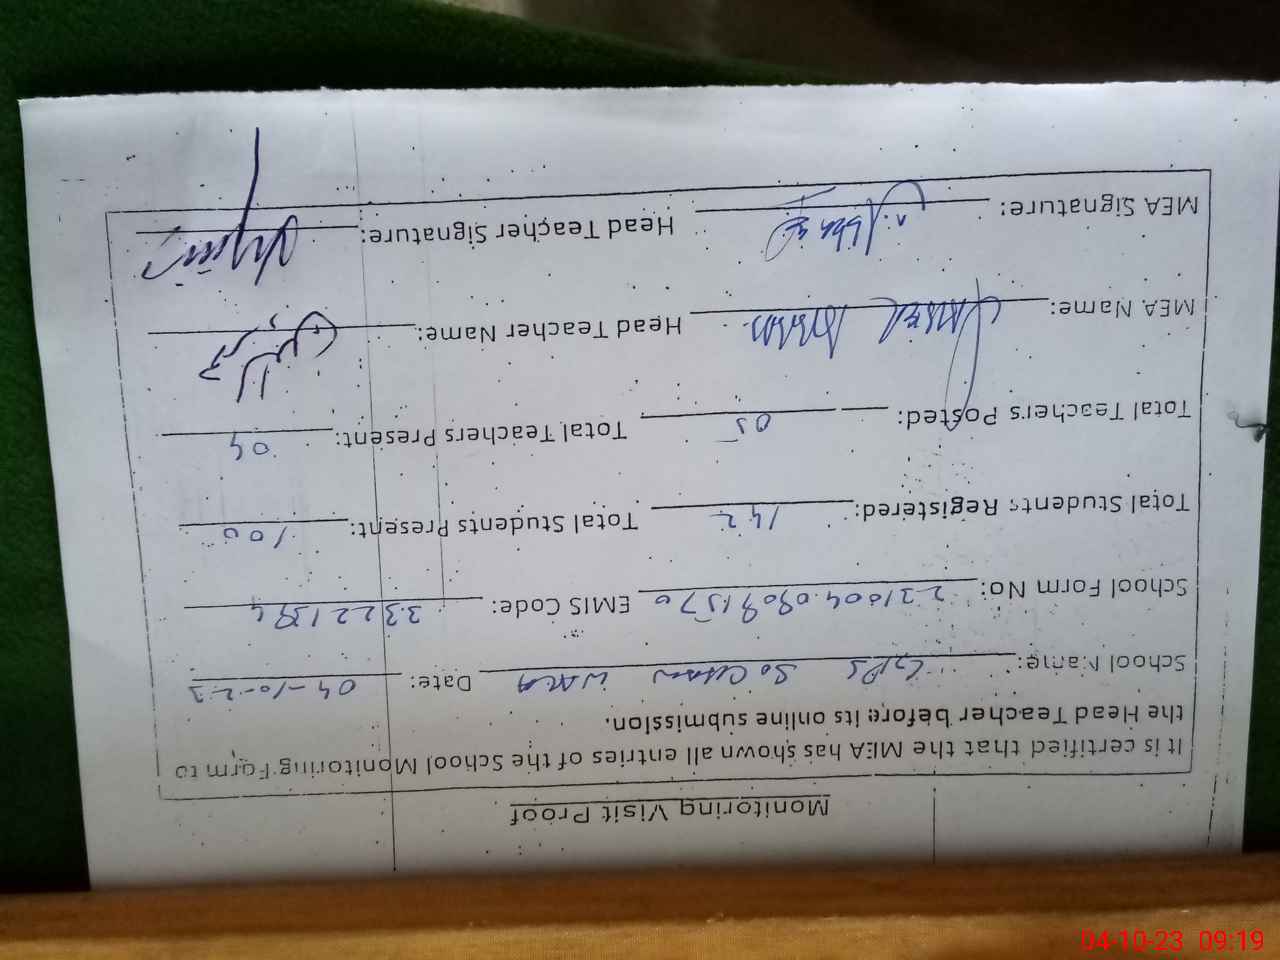 Monitoring Visit Proof
It is certified that the MEA has shown all entries of the School Monitoring Form to
the Head Teacher before its online submission.
School Name: GPS So Chan Wala Date: 04-10-23
School Form No: 231004.09091570 EMIS Code:
Total Students Registered: 142 Total Students Present: 100
Total Teachers Posted: 05 Total Teachers Present: 04
MEA Name: Head Teacher Name:
MEA Signature: Head Teacher Signature:
04-10-23 09:19